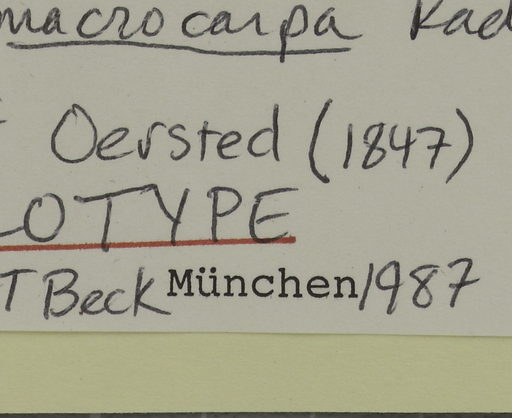 macrocarpa Rad
Oersted (1847)
LOTYPE
T Beck München/1987